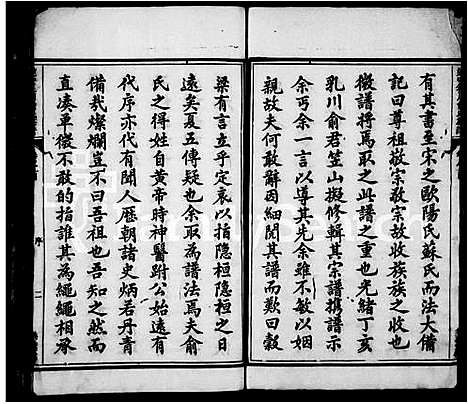 有其書至宋之歐陽氏蘇氏而法大備
記曰尊祖敬宗敬宗故收族族之收也
微譜將焉取之此譜之重也光緒丁亥
乳川俞君笠山擬修輯其宗譜携譜示
余丐余一言以導其先余雖不敏以姻
親故夫何敢辭因細閱其譜而歎曰穀
梁有言立乎定哀以指隐桓隐桓之日
遠矣夏五傳疑也余取為譜法焉夫俞
氏之得姓自黃帝時神醫跗公始遠有
代序亦代有聞人歷朝諸史炳若丹青
備哉燦爛豈不曰吾祖也吾知之然而
直湊單微不敢的指誰其為繩繩相承
序
二